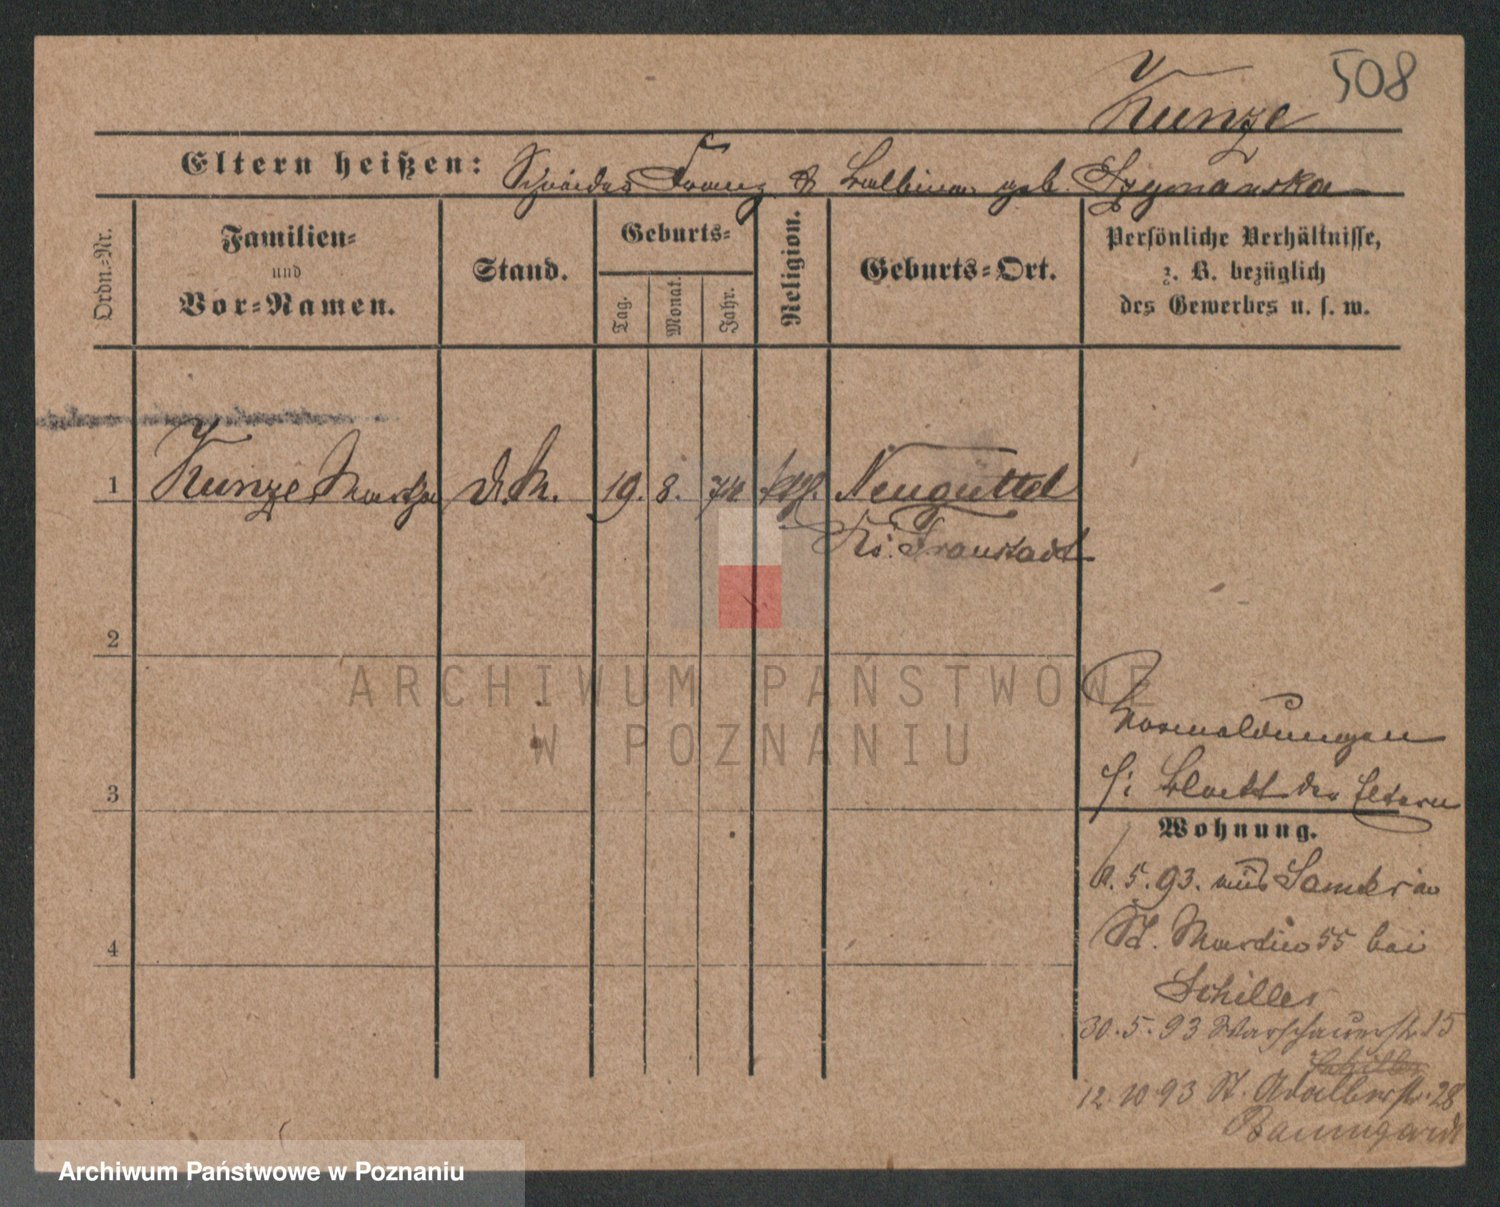 508
Kunze
Eltern heißen: Schneider Franz & Balbina geb. Szymanska
Ordn.-Nr.
Familien-
und
Vor-Namen.
Stand.
Geburts-
Tag.
Monat.
Jahr.
Religion.
Geburts-Ort.
Persönliche Verhältnisse,
z. B. bezüglich
des Gewerbes u. s. w.
1 Kunze Martha d. M. 19. 8. 74 kth. Neuguttel
Krs. Fraustadt
2
ARCHIWUM PAŃSTWOWE
W POZNANIU
Vormeldungen
3
s: Blatt der Eltern
Wohnung.
9. 5. 93. aus Samter in
St. Martin 55 bei
4
Schiller
30. 5. 93 Warschauerstr. 15
Schiller
12. 10 93 St. Adalbertstr. 28
Baumgardt
Archiwum Państwowe w Poznaniu